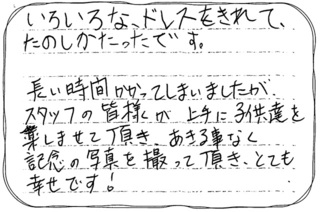 いろいろな、ドレスをきれて、
たのしかたったです。
長い時間かかってしまいましたが
スタッフの皆様が上手に子供達を
楽しませて頂き、あきる事なく
記念の写真を撮って頂き、とても
幸せです!